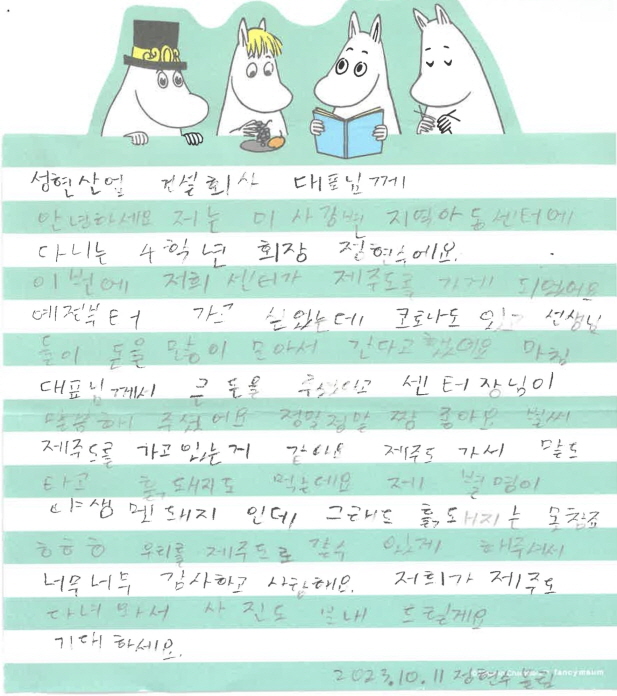 성현산업 건설회사 대표님께
안녕하세요 저는 미사강변 지역아동센터에
다니는 4학년 회장 정현수에요.
이번에 저희 센터가 제주도를 가게 되었어요
예전부터 가고 싶었는데 코로나도 있고 선생님
들이 돈을 많이 모아서 간다고 했어요 마침
대표님께서 큰 돈을 주셨다고 센터장님이
말씀해 주셨어요 정말정말 짱 좋아요 벌써
제주도를 가고있는거 같아요 제주도 가서 말도
타고 흙돼지도 먹는데요 제 별명이
야생 멧돼지 인데 그래도 흙돼지는 못참죠
ㅎㅎㅎ 우리를 제주도로 갈수 있게 해주셔서
너무너무 감사하고 사랑해요. 저희가 제주도
다녀 와서 사진도 보내 드릴게요
기대하세요.
2023.10.11 정현수 올림
fancymaum